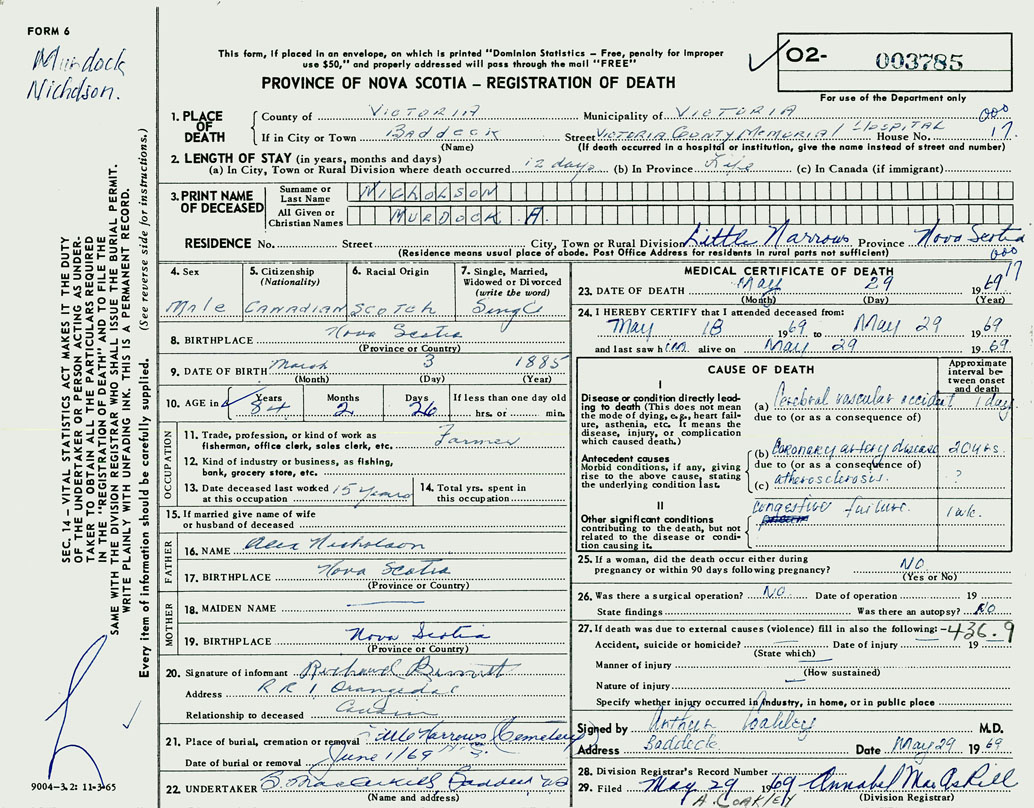 FORM 6
Murdock
Nicholson.
This form, if placed in an envelope, on which is printed "Dominion Statistics – Free, penalty for improper
use $50," and properly addressed will pass through the mail "FREE"
PROVINCE OF NOVA SCOTIA – REGISTRATION OF DEATH
O2- 003785
For use of the Department only
1. PLACE OF DEATH
County of VICTORIA Municipality of VICTORIA 000
If in City or Town BADDECK Street VICTORIA COUNTY MEMORIAL HOSPITAL House No. 17
(Name) (If death occurred in a hospital or institution, give the name instead of street and number)
2. LENGTH OF STAY (in years, months and days)
(a) In City, Town or Rural Division where death occurred 12 days (b) In Province Life (c) In Canada (if immigrant)
3. PRINT NAME OF DECEASED
Surname or Last Name NICHOLSON
All Given or Christian Names MURDOCK A.
RESIDENCE No. Street City, Town or Rural Division Little Narrows Province Nova Scotia
(Residence means usual place of abode. Post Office Address for residents in rural parts not sufficient) 000
17
4. Sex
Male
5. Citizenship
(Nationality)
Canadian
6. Racial Origin
SCOTCH
7. Single, Married,
Widowed or Divorced
(write the word)
Single
8. BIRTHPLACE Nova Scotia
(Province or Country)
9. DATE OF BIRTH March 3 1885
(Month) (Day) (Year)
10. AGE in Years Months Days If less than one day old
84 2 26 hrs. or min.
OCCUPATION
11. Trade, profession, or kind of work as
fisherman, office clerk, sales clerk, etc. Farmer
12. Kind of industry or business, as fishing,
bank, grocery store, etc.
13. Date deceased last worked
at this occupation 15 years
14. Total yrs. spent in
this occupation
15. If married give name of wife
or husband of deceased
FATHER
16. NAME Alex Nicholson
17. BIRTHPLACE Nova Scotia
(Province or Country)
MOTHER
18. MAIDEN NAME
19. BIRTHPLACE Nova Scotia
(Province or Country)
20. Signature of informant Richard
Address R R 1 Orangedale
Relationship to deceased Cousin
21. Place of burial, cremation or removal Little Narrows Cemetery
N.S.
Date of burial or removal June 1/69
22. UNDERTAKER B. MacAskill Baddeck NS
(Name and address)
MEDICAL CERTIFICATE OF DEATH
23. DATE OF DEATH May 29 1969
(Month) (Day) (Year)
24. I HEREBY CERTIFY that I attended deceased from:
May 18 1969 to May 29 1969
and last saw him alive on May 29 1969.
CAUSE OF DEATH
Approximate
interval be-
tween onset
and death
I
Disease or condition directly lead-
ing to death (This does not mean
the mode of dying, e.g., heart fail-
ure, asthenia, etc. It means the
disease, injury, or complication
which caused death.)
(a) Cerebral vascular accident 1 day
due to (or as a consequence of)
Antecedent causes
Morbid conditions, if any, giving
rise to the above cause, stating
the underlying condition last.
(b) Coronary artery disease 20 yrs.
due to (or as a consequence of)
(c) atherosclerosis. ?
II
Other significant conditions
contributing to the death, but not
related to the disease or condi-
tion causing it.
congestive failure. 1 wk.
25. If a woman, did the death occur either during
pregnancy or within 90 days following pregnancy? NO
(Yes or No)
26. Was there a surgical operation? NO Date of operation 19
State findings Was there an autopsy? NO
27. If death was due to external causes (violence) fill in also the following: 436.9
Accident, suicide or homicide? Date of injury 19
(State which)
Manner of injury
(How sustained)
Nature of injury
Specify whether injury occurred in industry, in home, or in public place
Signed by Arthur Coakley M.D.
Address Baddeck Date May 29 1969
28. Division Registrar's Record Number
29. Filed May 29 1969 Annabel MacAskill
(Division Registrar)
A. COAKLEY
SEC. 14 – VITAL STATISTICS ACT MAKES IT THE DUTY
OF THE UNDERTAKER OR PERSON ACTING AS UNDER-
TAKER TO OBTAIN ALL THE PARTICULARS REQUIRED
IN THE "REGISTRATION OF DEATH" AND TO FILE THE
SAME WITH THE DIVISION REGISTRAR WHO SHALL ISSUE THE BURIAL PERMIT.
WRITE PLAINLY WITH UNFADING INK. THIS IS A PERMANENT RECORD.
Every item of information should be carefully supplied. (See reverse side for instructions.)
9004-3.2: 11-3-65